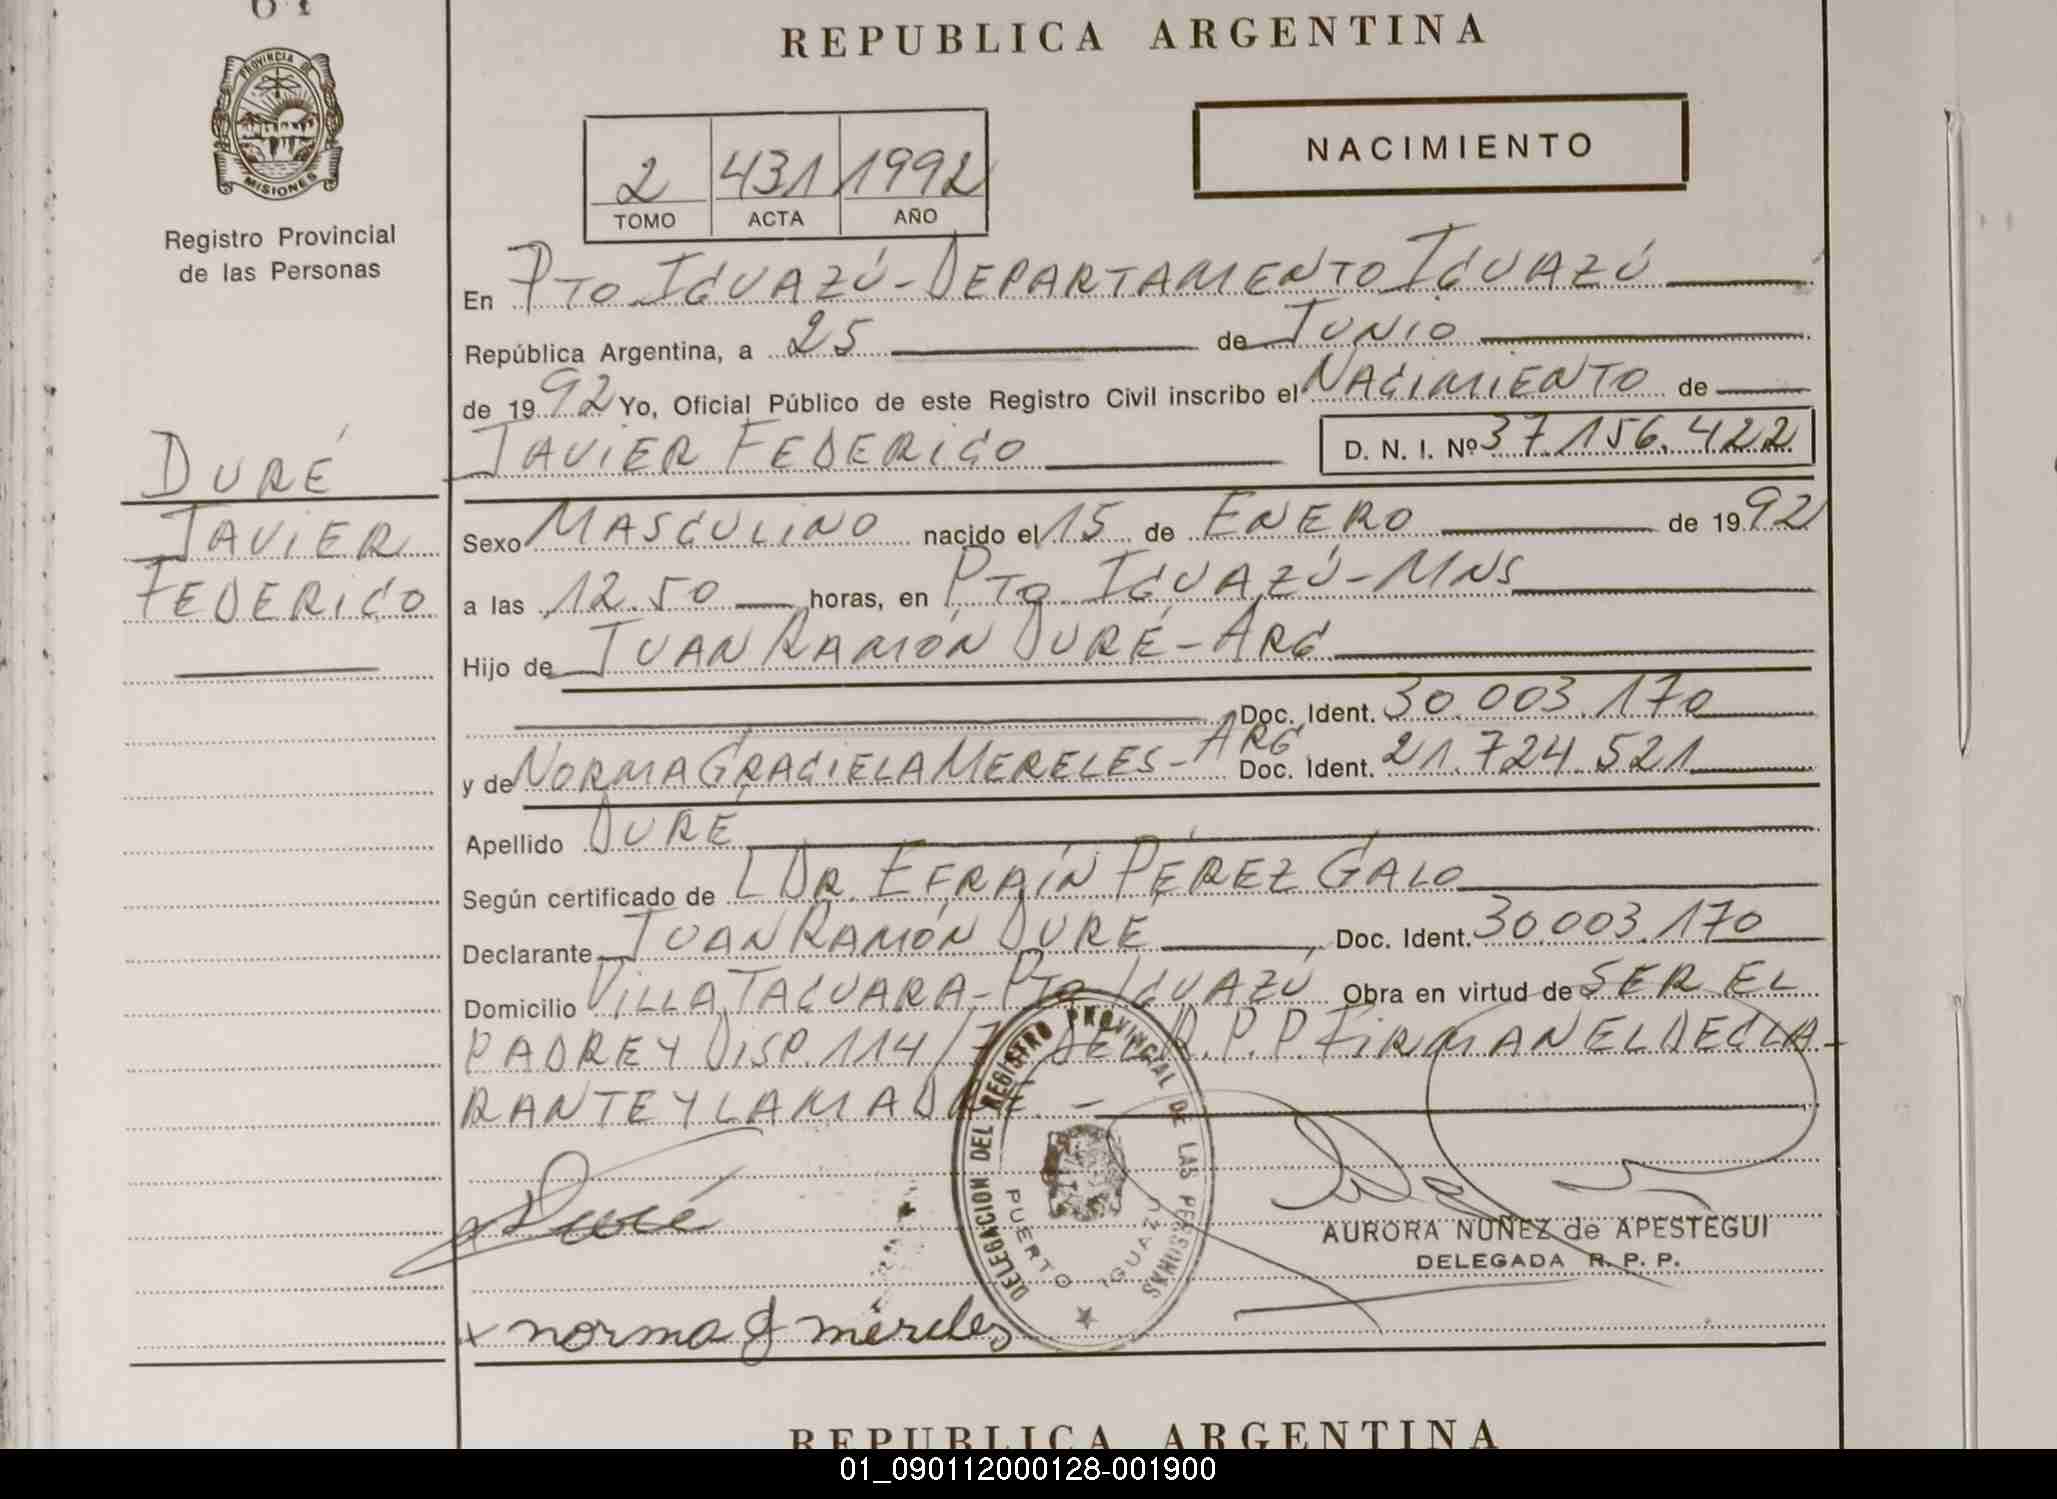 REPUBLICA ARGENTINA
PROVINCIA DE
MISIONES
Registro Provincial
de las Personas
NACIMIENTO
2 431 1992
TOMO ACTA AÑO
En PTO IGUAZÚ - DEPARTAMENTO IGUAZÚ
República Argentina, a 25 de JUNIO
de 1992 Yo, Oficial Público de este Registro Civil inscribo el NACIMIENTO de
JAVIER FEDERICO D. N. I. Nº 37.156.422
DURÉ
JAVIER
FEDERICO
Sexo MASCULINO nacido el 15 de ENERO de 1992
a las 12.50 horas, en PTO IGUAZÚ - MNS
Hijo de JUAN RAMÓN DURÉ - ARG
Doc. Ident. 30.003.170
y de NORMA GRACIELA MERELES - ARG Doc. Ident. 21.724.521
Apellido DURÉ
Según certificado de L DR. EFRAÍN PÉREZ GALO
Declarante JUAN RAMÓN DURÉ, Doc. Ident. 30.003.170
Domicilio VILLA TACUARA - PTO IGUAZÚ Obra en virtud de SER EL
PADRE Y DISP. 114/7 DEL R.P.P. FIRMAN EL DECLA-
RANTE Y LA MADRE. -
DELEGACION DEL REGISTRO PROVINCIAL DE LAS PERSONAS
PUERTO IGUAZU
Duré
AURORA NUÑEZ de APESTEGUI
DELEGADA R. P. P.
x norma g mereles
REPUBLICA ARGENTINA
01_090112000128-001900